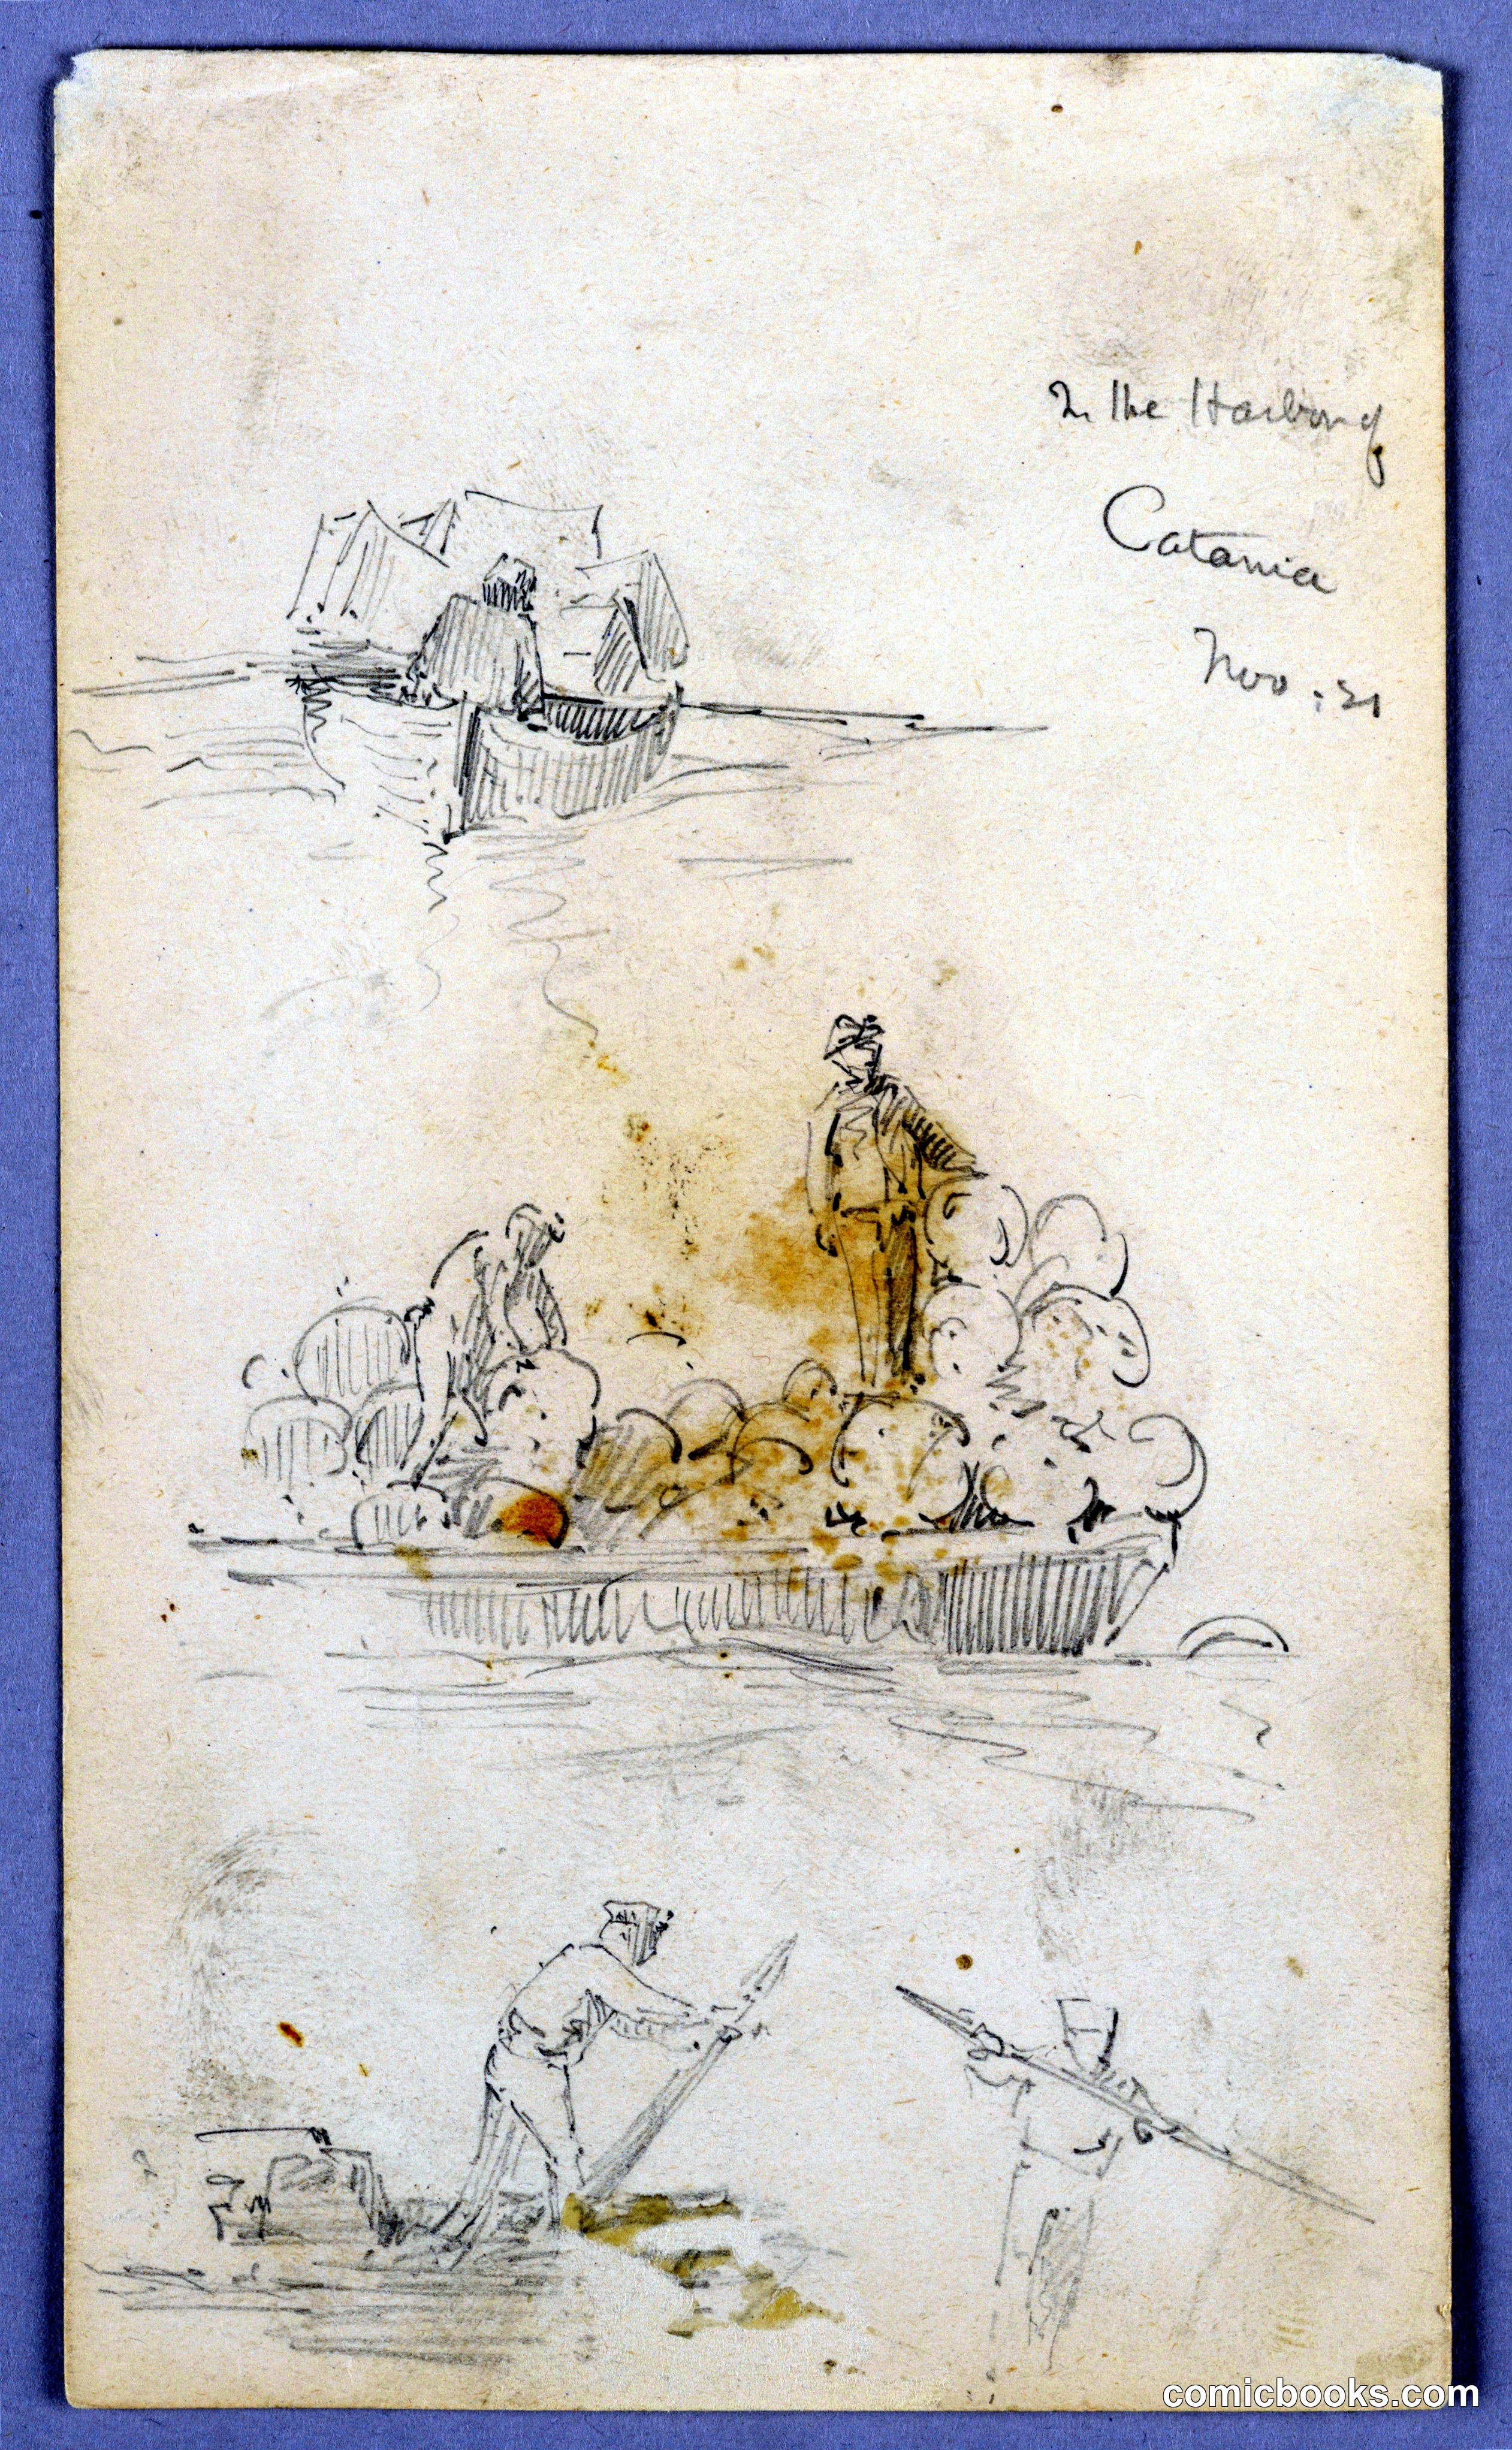 In the Harbour of
Catania
Nov. 21
comicbooks.com